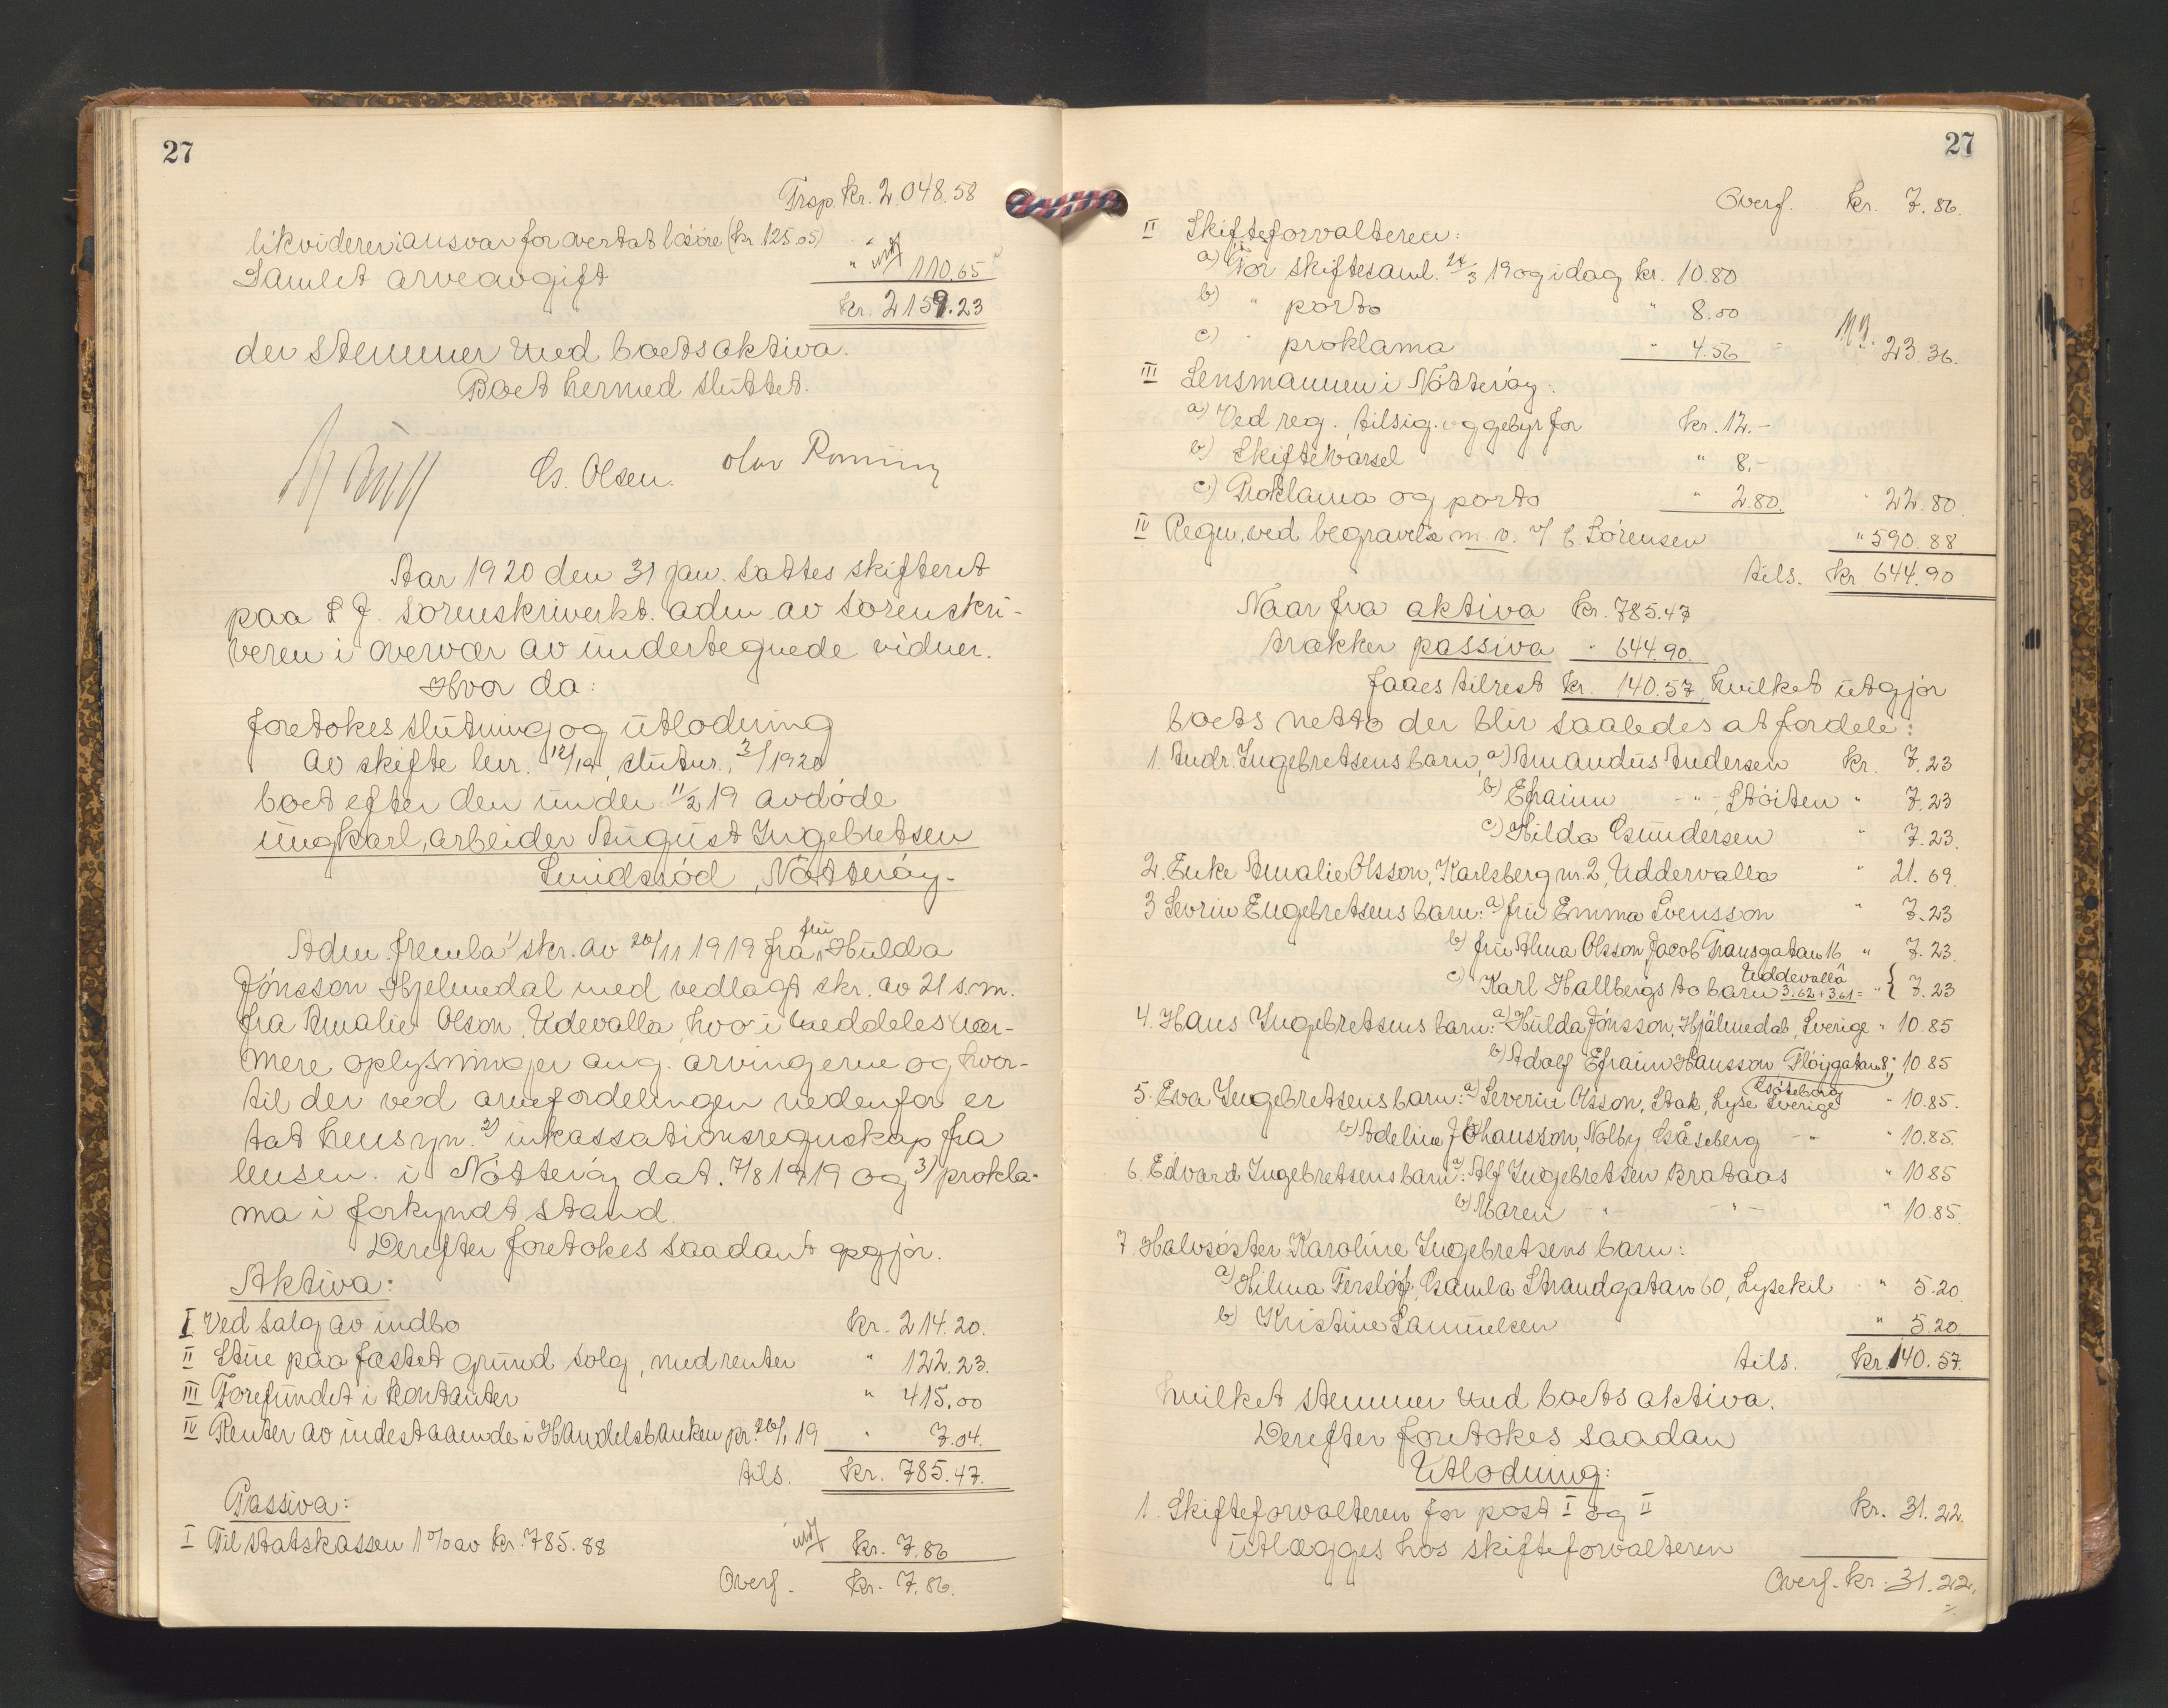 27
Trsp. kr. 2.048.58
likviderer i ansvar for overtat løsøre (kr. 125.05) " "
Samlet arveavgift " 110.65
kr. 2159.23
der stemmer med boets aktiva.
Boet hermed sluttet.
G. Olsen. Olav Ronning
Aar 1920 den 31 jan. sattes skifteret
paa S. J. sorenskriverkt. adm. av sorenskri-
veren i overvær av undertegnede vidner.
Hvor da:
foretokes slutning og utlodning
av skifte lnr. 12/19, slutnr. 3/1920
boet efter den under 11/2 19 avdøde
ungkarl, arbeider August Ingebretsen
Smidsrød, Nøtterøy.
Adm. fremla 1) skr. av 20/11 1919 fra fru Hulda
Jónsson Hjelmedal med vedlagt skr. av 21 s.m.
fra Amalie Olson, Udevalla, hvori meddeles nær-
mere oplysninger ang. arvingerne og hvor-
til der ved arvefordelingen nedenfor er
tat hensyn. 2) inkassationsregnskap fra
lensm. i Nøtterøy dat. 7/8 1919 og 3) prokla-
ma i forkyndt stand.
Derefter foretokes saadant opgjør.
Aktiva:
I Ved salg av indbo kr. 214.20.
II Stue paa fæstet grund solg, med renter " 122.23.
III Forefundet i kontanter " 415.00
IV Renter av indestaaende i Handelsbanken pr. 20/1 19 " 7.04.
tils. kr. 785.47.
Passiva:
I Til statskassen 1% av kr. 785.88 kr. 7.86
Overf. kr. 7.86.
27
Overf. kr. 7.86.
II Skifteforvalteren:
a) For skiftesaml. 24/3 19 og idag kr. 10.80
b) " porto " 8.00
c) " proklama " 4.56 " 23.36.
III Lensmannen i Nøtterøy:
a) Ved reg., tilsig. og gebyr for kr. 12.-
b) Skiftevarsel " 8.-
c) Proklama og porto " 2.80. " 22.80.
IV Regn. ved begravelse m.v. v/ E. Sørensen " 590.88
tils. kr 644.90
Naar fra aktiva kr. 785.47
trækker passiva " 644.90.
faaes tilrest kr. 140.57, hvilket utgjør
boets netto der blir saaledes at fordele:
1. Andr. Ingebretsens barn, a) Amandus Andersen kr. 7.23
b) Efraim -"- Støiten " 7.23
c) Hilda Gundersen " 7.23.
2. Enke Amalie Olsson, Karlsberg nr. 2, Uddervalla " 21.69.
3 Sevrin Engebretsens barn: a) fru Emma Svensson " 7.23
b) fru Alma Olsson, Jacob Transgatan 16 " 7.23.
Uddevalla
c) Karl Hallbergs to barn 3.62 + 3.61 = " { 7.23
4. Hans Ingebretsens barn: a) Hulda Jónsson, Hjälmedal, Sverige " 10.85
b) Adolf Efraim Hansson Flöigatan 8, " 10.85
Göteborg
5. Eva Ingebretsens barn: a) Severin Olsson, Stak, Lyse Sverige " 10.85.
b) Adeline Johansson, Nolby, Gåseberg -"- " 10.85.
6. Edvard Ingebretsens barn: a) Alf Ingebretsen Brataas " 10.85
b) Maren -"- -"- " 10.85.
7. Halvsøster Karoline Ingebretsens barn:
a) Hilma Ferslöf, Gamla Strandgatan 60, Lysekil " 5.20.
b) Kristine Samuelsen " 5.20.
tils. kr. 140.57.
hvilket stemmer med boets aktiva.
Derefter foretokes saadan
Utlodning:
1. Skifteforvalteren for post I og II kr. 31.22.
utlægges hos skifteforvalteren
Overf. kr. 31.22.